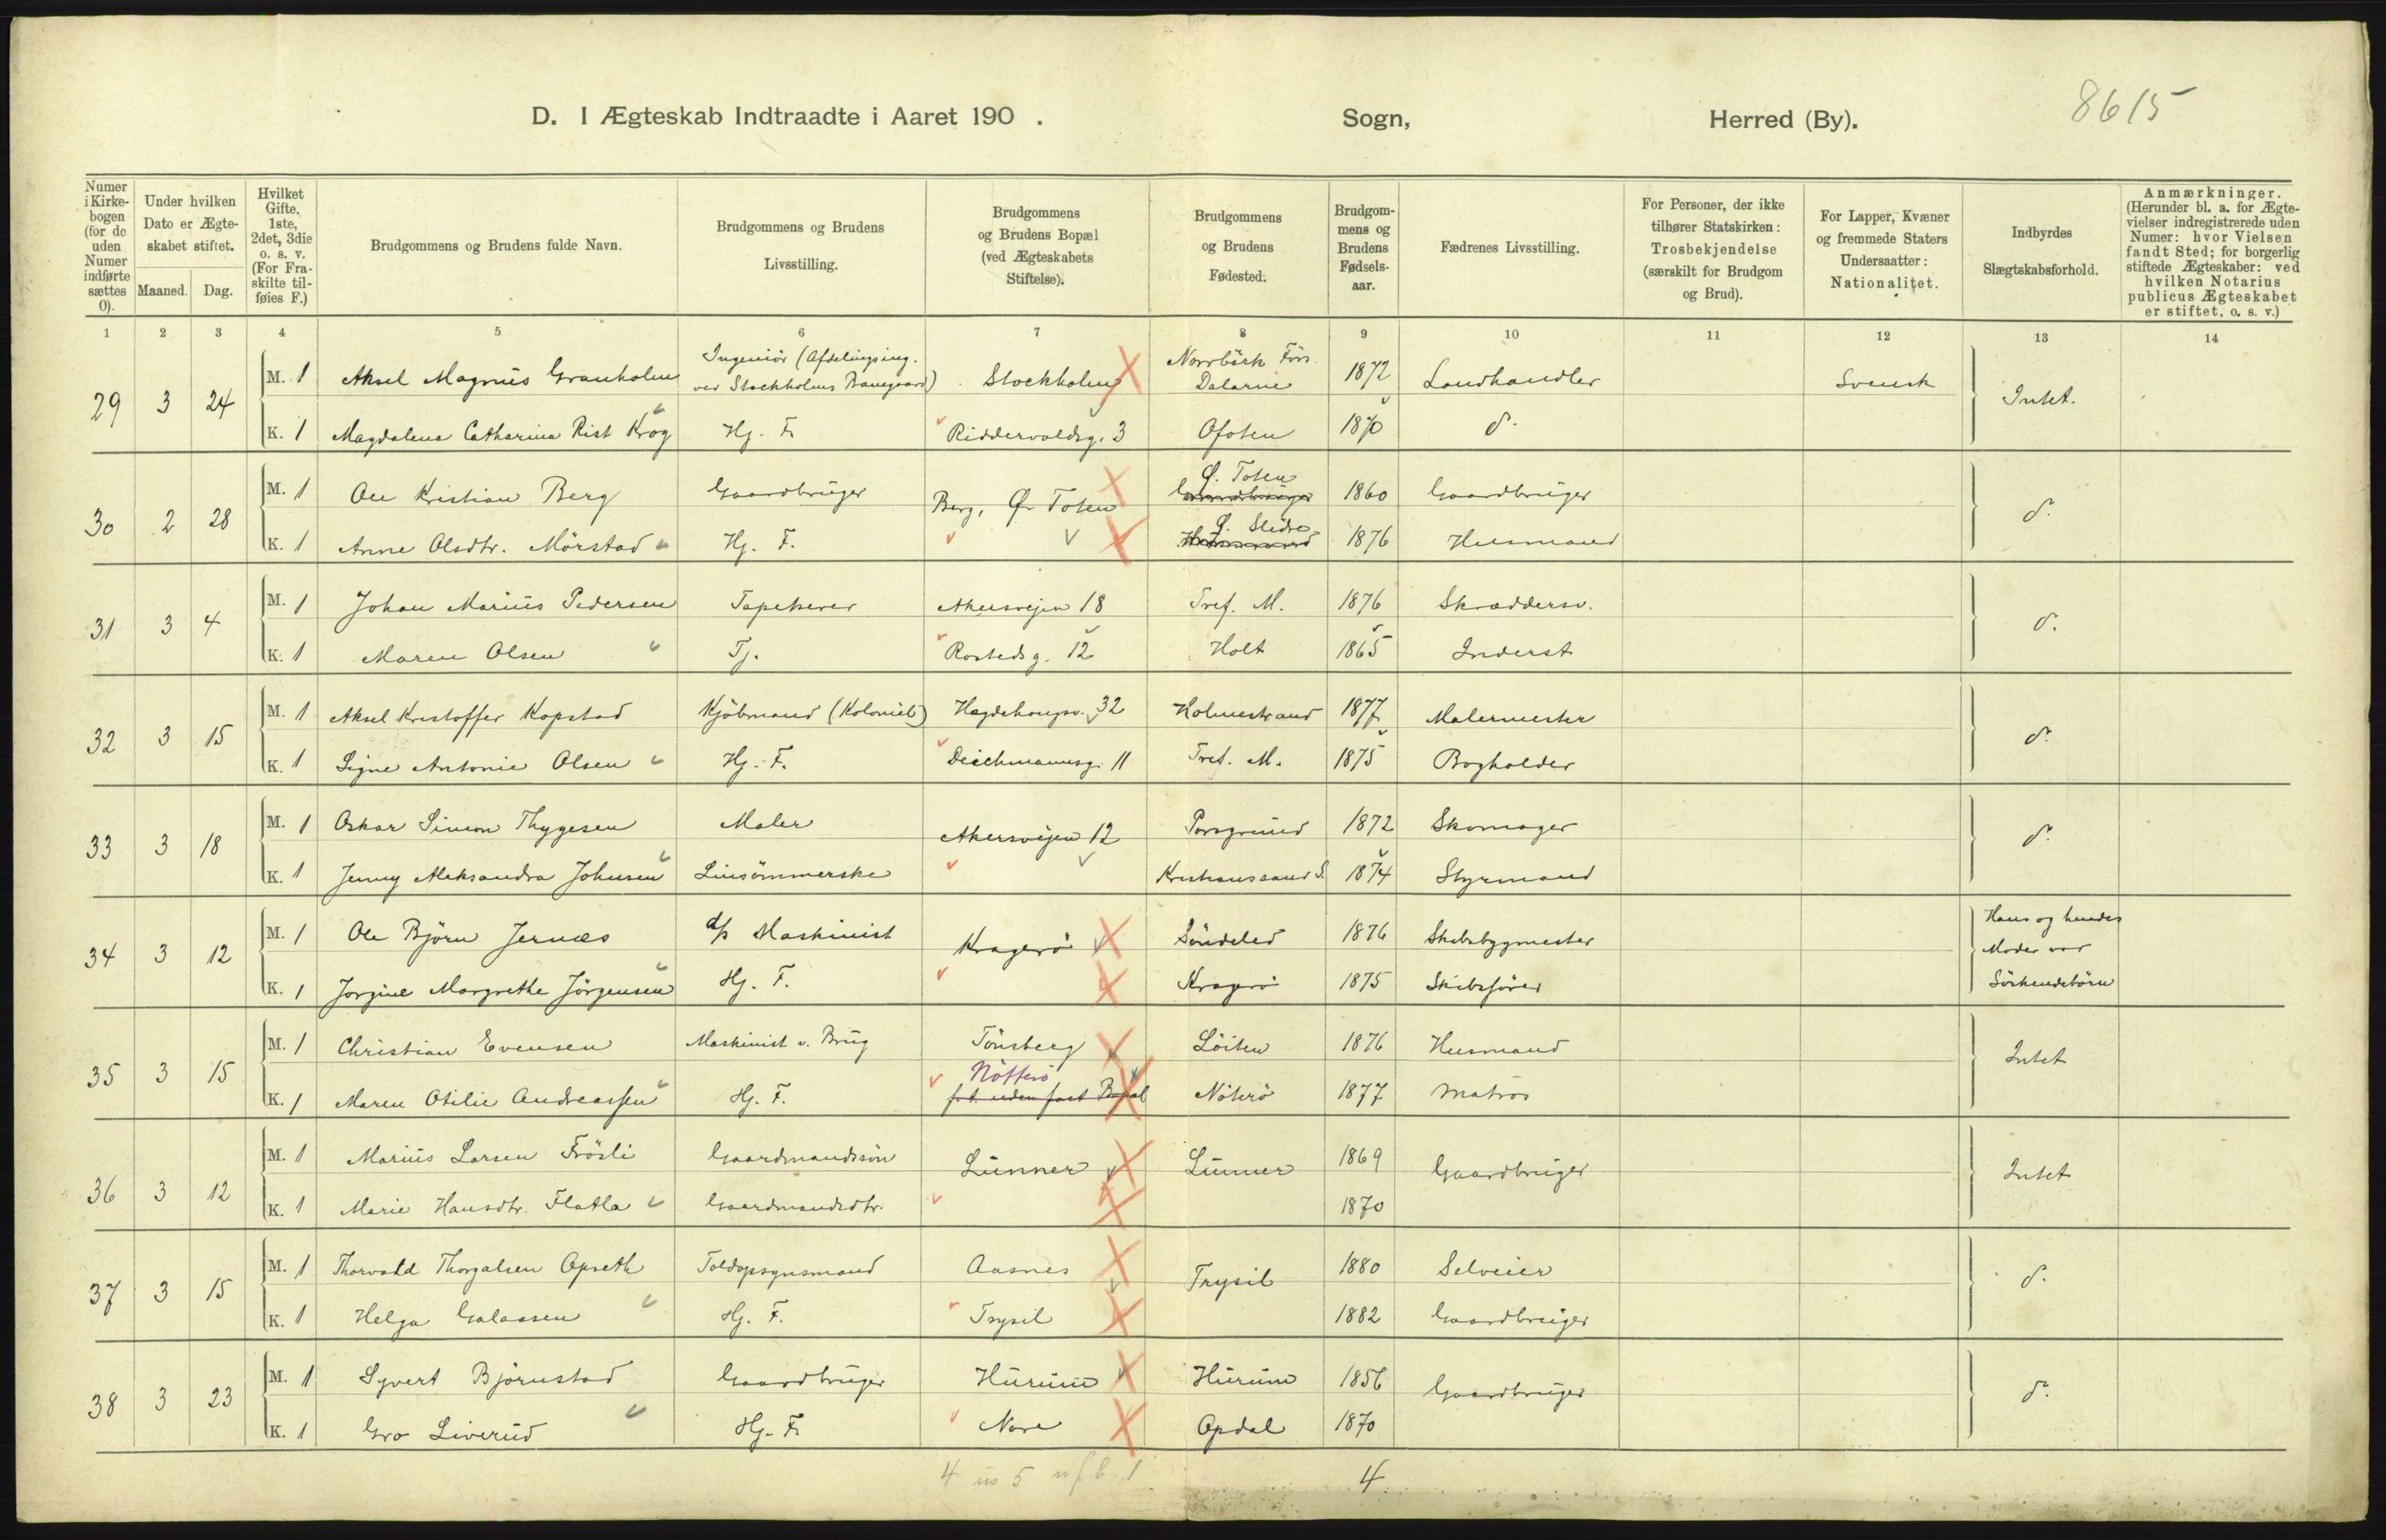 8615
D. I Ægteskab Indtraadte i Aaret 190 . Sogn, Herred (By).
Numer i Kirkebogen (for de uden Numer indførte sættes 0).
Under hvilken Dato er Ægteskabet stiftet.
Maaned. Dag.
Hvilket Gifte, 1ste, 2det, 3die o. s. v. (For Fraskilte tilføies F.)
Brudgommens og Brudens fulde Navn.
Brudgommens og Brudens Livsstilling.
Brudgommens og Brudens Bopæl (ved Ægteskabets Stiftelse).
Brudgommens og Brudens Fødested.
Brudgommens og Brudens Fødselsaar.
Fædrenes Livsstilling.
For Personer, der ikke tilhører Statskirken: Trosbekjendelse (særskilt for Brudgom og Brud).
For Lapper, Kvæner og fremmede Staters Undersaatter: Nationalitet.
Indbyrdes Slægtskabsforhold.
Anmærkninger. (Herunder bl. a. for Ægtevielser indregistrerede uden Numer: hvor Vielsen fandt Sted; for borgerlig stiftede Ægteskaber: ved hvilken Notarius publicus Ægteskabet er stiftet, o. s. v.)
1 2 3 4 5 6 7 8 9 10 11 12 13 14
29 3 24 M. 1 Aksel Magnus Granholm Ingeniör (Afdelingsing. ved Stockholms Banegaard) Stockholm Norrbärk Förs. Dalarne 1872 Landhandler Svensk Intet.
K. 1 Magdalena Catharina Rist Krog Hj. F. Riddervoldsg. 3 Ofoten 1870 d.
30 2 28 M. 1 Ole Kristian Berg Gaardbruger Berg, Ø. Toten Ø. Toten 1860 Gaardbruger d.
K. 1 Anne Olsdtr. Mörstad Hj. F. Ø. Slidre 1876 Husmand
31 3 4 M. 1 Johan Marius Pedersen Tapetserer Akersvejen 18 Tref. M. 1876 Skræddersv. d.
K. 1 Maren Olsen Tj. Rostedsg. 12 Holt 1865 Inderst
32 3 15 M. 1 Aksel Kristoffer Kopstad Kjöbmand (Kolonial) Hægdehougsv. 32 Holmestrand 1877 Malermester d.
K. 1 Signe Antonie Olsen Hj. F. Deichmannsg. 11 Tref. M. 1875 Bogholder
33 3 18 M. 1 Oskar Simon Thygesen Maler Akersvejen 12 Porsgrund 1872 Skomager d.
K. 1 Jenny Aleksandra Johnsen Linsömmerske Kristianssand S. 1874 Styrmand
34 3 12 M. 1 Ole Björn Jernæs d/s Maskinist Kragerö Söndeled 1876 Skibsbygmester Hans og hendes Moder var Söskendebörn
K. 1 Jorgine Margrethe Jörgensen Hj. F. Kragerö 1875 Skibsförer
35 3 15 M. 1 Christian Evensen Maskinist v. Brug Tönsberg Löiten 1876 Husmand Intet
K. 1 Maren Otilie Andreassen Hj. F. Nötterö f.t. uden fast Bopæl Nöterö 1877 Matros
36 3 12 M. 1 Marius Larsen Frösli Gaardmandssön Lunner Lunner 1869 Gaardbruger Intet
K. 1 Marie Hansdtr. Flatla Gaardmandsdtr. 1870
37 3 15 M. 1 Thorvald Thorgalsen Opseth Toldopsynsmand Aasnes Trysil 1880 Selveier d.
K. 1 Helga Galaasen Hj. F. Trysil 1882 Gaardbruger
38 3 23 M. 1 Syvert Björnstad Gaardbruger Hurum Hurum 1856 Gaardbruger d.
K. 1 Gro Liverud Hj. F. Nore Opdal 1870
4 us 5 1 4